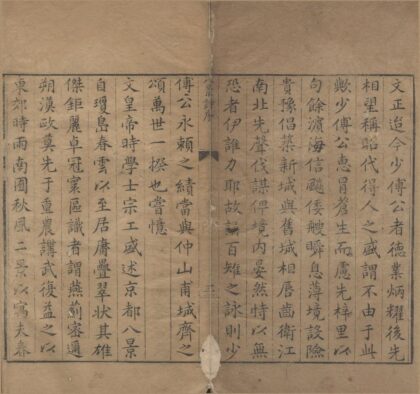 文正迨今少傅公者德業炳耀後先
相望稱昭代得人之盛謂不由于此
歟少傅公惠冐蒼生而慮先梓里以
句餘濵海信飈倭艘瞬息薄境設險
貴豫倡築新城與舊城相唇齒衛江
南北先聲伐謀俾境内晏然恃以無
恐者伊誰力耶故百雉之詠則少
傅公永賴之績當與仲山甫城齊之
頌萬世一揆也嘗憶
文皇帝時學士宗工盛述京都八景
自瓊島春雲以至居庸疊翠狀其雄
傑鉅麗卓冠寰區識者謂燕薊密邇
朔漠欧莫先于重農講武復益之以
東郊時雨南囿秋風二景以寓夫春